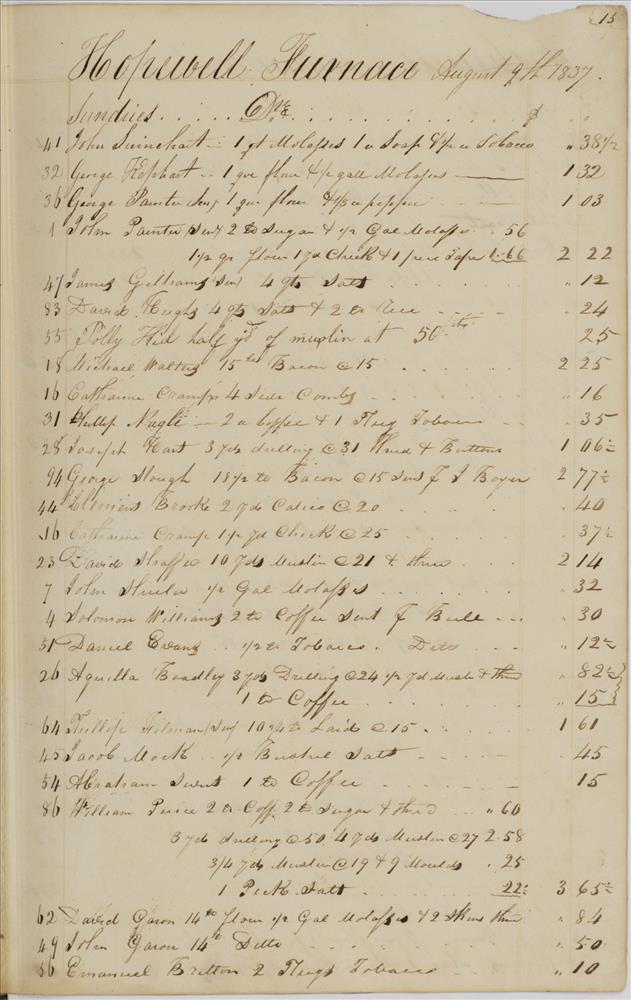 15
Hopewell Furnace August 9th 1837.
Sundries . . . . . Drs . . . . . . . . $ "
41 John Swinehart - 1 qt Molasses 1 lb Soap & 1/2 lb Tobacco " 38 1/2
32 George Kephart - 1 qr flour & 1/2 gall Molasses 1 32
36 George Painter Jun 1 qr flour pepper 1 03
1 John Painter 2 lb Sugar & 1/2 Gal Molasses . 56
1/2 qr flour 1 yd Check & 1 piece Tape 1.66 2 22
47 James 4 qts Salt " 12
83 David Hughs 4 qts Salt & 2 lb Rice " 24
55 Polly Kid half yd of muslin at 50 cts 25
18 Michael Walters 15 lbs Bacon @ 15 2 25
16 Catharine Cramp 4 Side Combs " 16
31 Phillip Nagle - 2 lb Coffee & 1 Plug Tobacco " 35
28 Joseph Hart 3 yds drilling @ 31 Thred & Buttons 1 06 1/2
94 George Slough 18 1/2 lb Bacon @ 15 Sent J Boyer 2 77 1/2
44 Brook 2 yd Calico @ 20 " 40
16 Catharine Cramp 1 1/2 yd Check @ 25 . 37 1/2
23 David Shaffer 10 yds Muslin @ 21 & thred 2 14
7 John 1/2 Gal Molasses " 32
4 Solomon Williams 2 lb Coffee Sent J Bell " 30
51 Daniel Evans . . 1/2 lb Tobacco . Ditto " 12 1/2
26 Aquilla Bradley 3 yds Drilling @ 24 1/2 yd Muslin & thred " 82 1/2
1 lb Coffee " 15
64 Phillip Filman 10 3/4 lb Lard @ 15 1 61
45 Jacob Mock . . 1/2 Bushel Salt . 45
54 Abraham 1 lb Coffee 15
86 William Price 2 lb Coff 2 lb Sugar & thred " 60
3 yds drilling @ 50 4 yds Muslin @ 27 2.58
3/4 yds Muslin @ 19 & 9 Moulds . 25
1 Peck Salt 22 1/2 3 65 1/2
62 David Garon 14 lb flour 1/2 Gal Molasses & 2 Skins thre " 84
49 John Garon 14 lb Ditto " 50
56 Emanuel Britton 2 Plugs Tobacco " 10